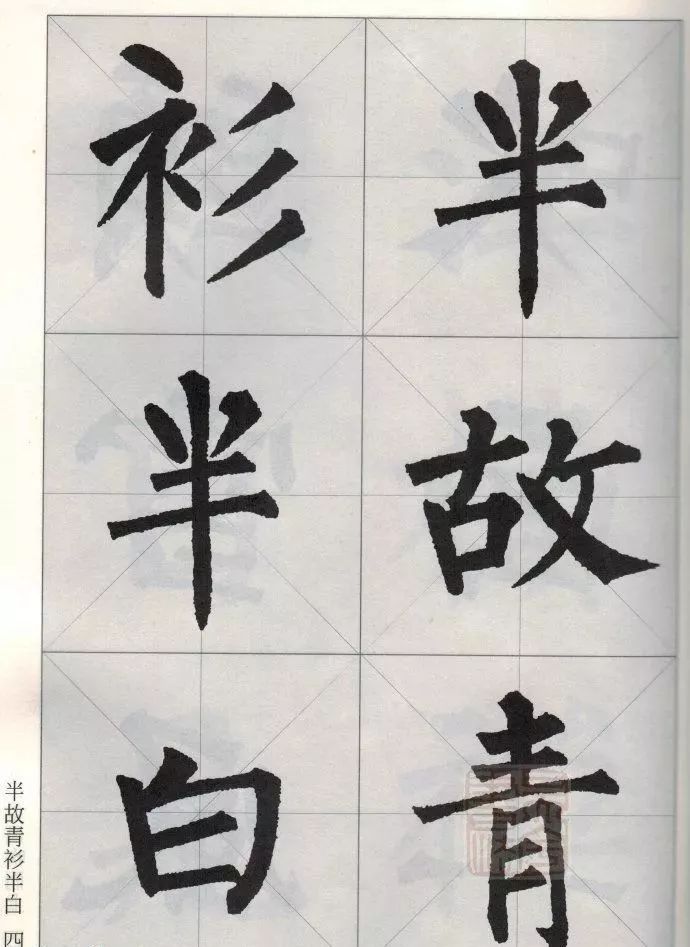 半故青
衫半白
半故青衫半白 四